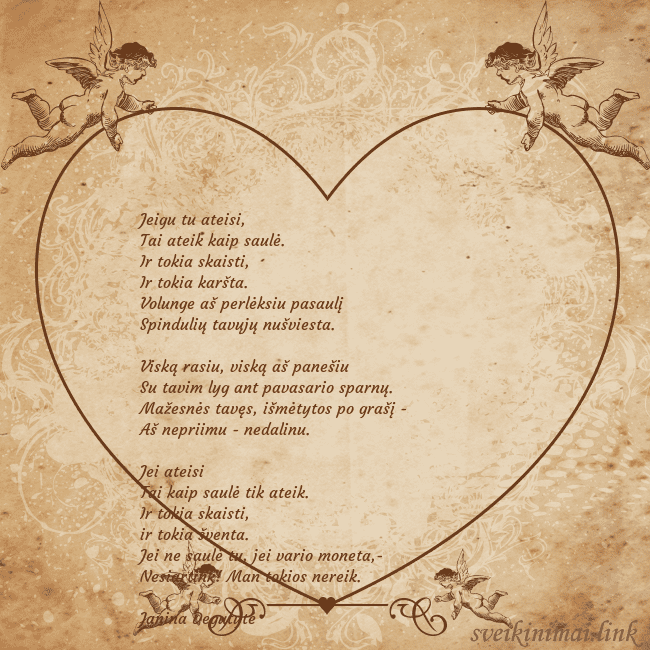 Jeigu tu ateisi,
Tai ateik kaip saulė.
Ir tokia skaisti,
Ir tokia karšta.
Volunge aš perlėksiu pasaulį
Spindulių tavųjų nušviesta.

Viską rasiu, viską aš panešiu
Su tavim lyg ant pavasario sparnų.
Mažesnės tavęs, išmėtytos po grašį -
Aš nepriimu - nedalinu.

Jei ateisi
Tai kaip saulė tik ateik.
Ir tokia skaisti,
ir tokia šventa.
Jei ne saulė tu, jei vario moneta,-
Nesiartink! Man tokios nereik.

Janina Degutytė
sveikinimai.link